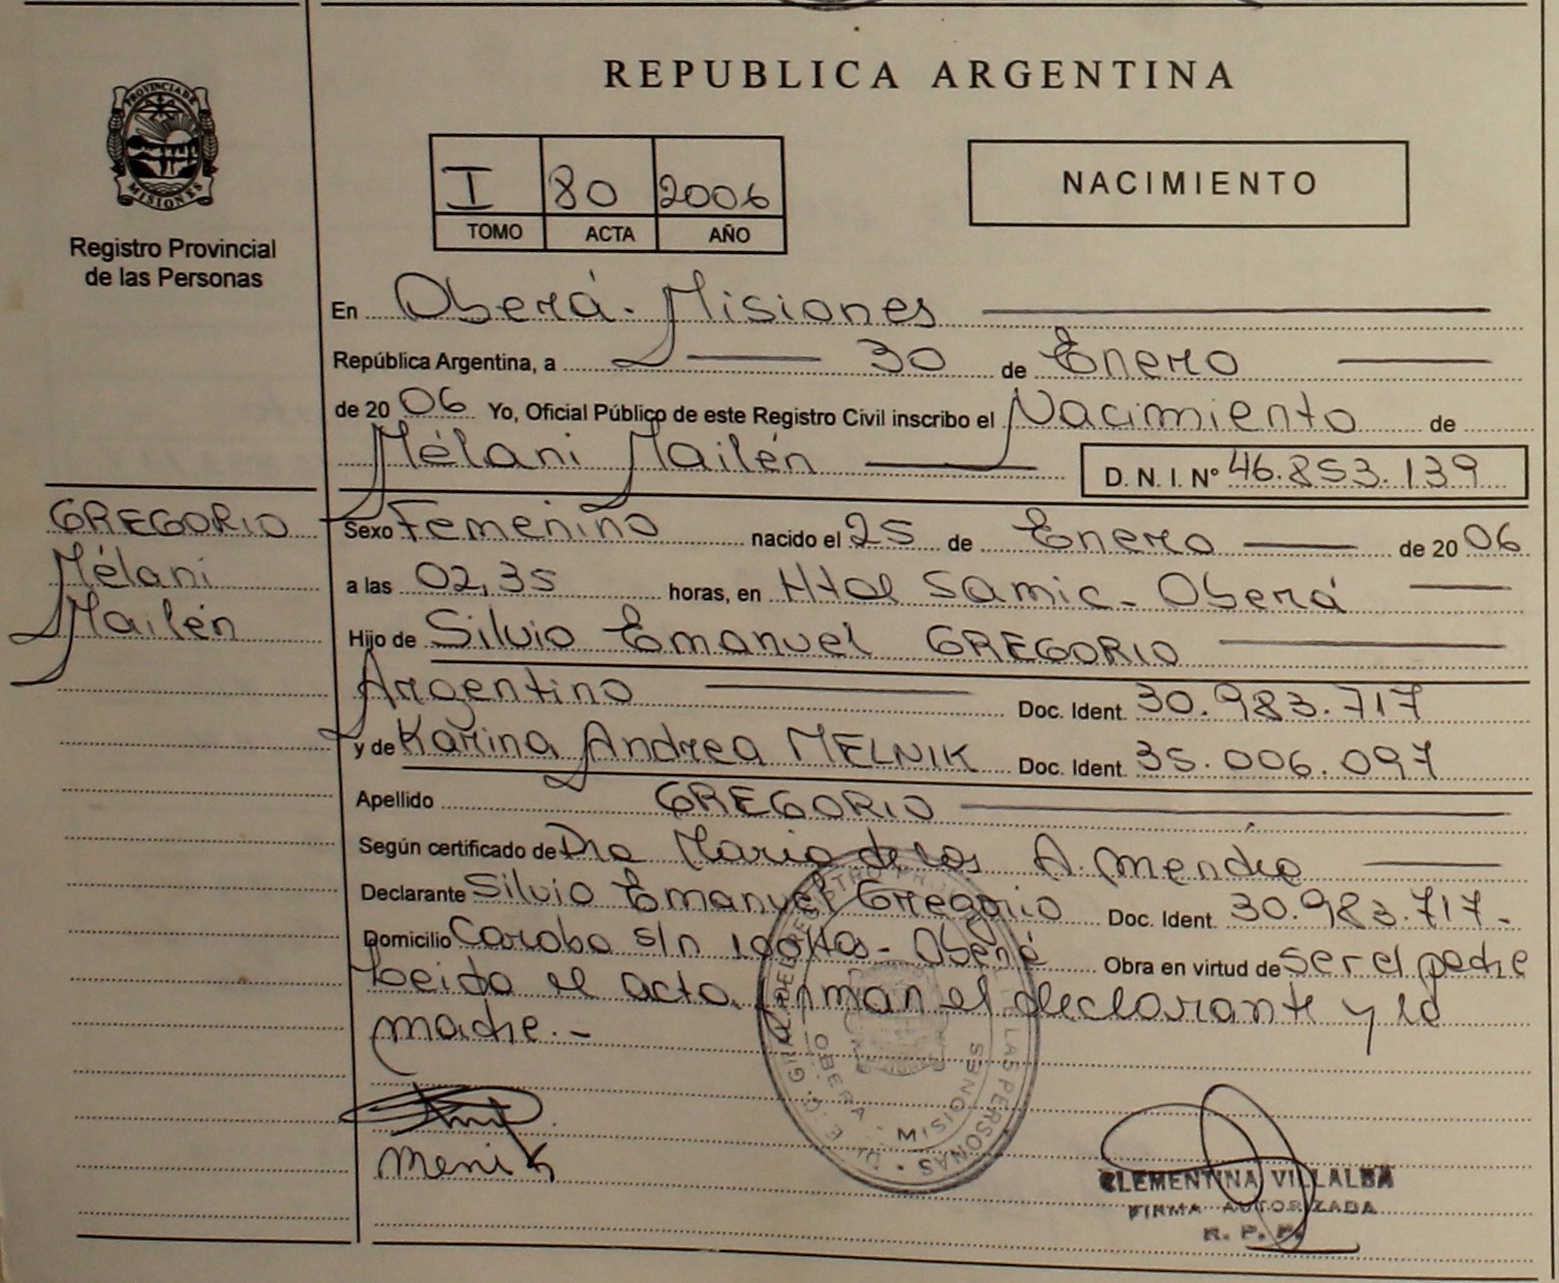 REPUBLICA ARGENTINA
PROVINCIA DE
MISIONES
Registro Provincial
de las Personas
I 80 2006
TOMO ACTA AÑO
NACIMIENTO
En Oberá - Misiones
República Argentina, a 30 de Enero
de 2006 Yo, Oficial Público de este Registro Civil inscribo el Nacimiento de
Mélani Mailén D. N. I. Nº 46.853.139
GREGORIO
Mélani
Mailén
Sexo Femenino nacido el 25 de Enero de 2006
a las 02,35 horas, en Htal Samic - Oberá
Hijo de Silvio Emanuel GREGORIO
Argentino Doc. Ident. 30.983.717
y de Karina Andrea MELNIK Doc. Ident. 35.006.097
Apellido GREGORIO
Según certificado de Dra Maria de los A. Mendia
Declarante Silvio Emanuel Gregorio Doc. Ident. 30.983.717.-
Domicilio s/n - Oberá Obra en virtud de ser el padre
Leida el acta, firman el declarante y la
madre.-
OBERA - MISIONES
LAS PERSONAS
CLEMENTINA VILLALBA
FIRMA AUTORIZADA
R. P. P.